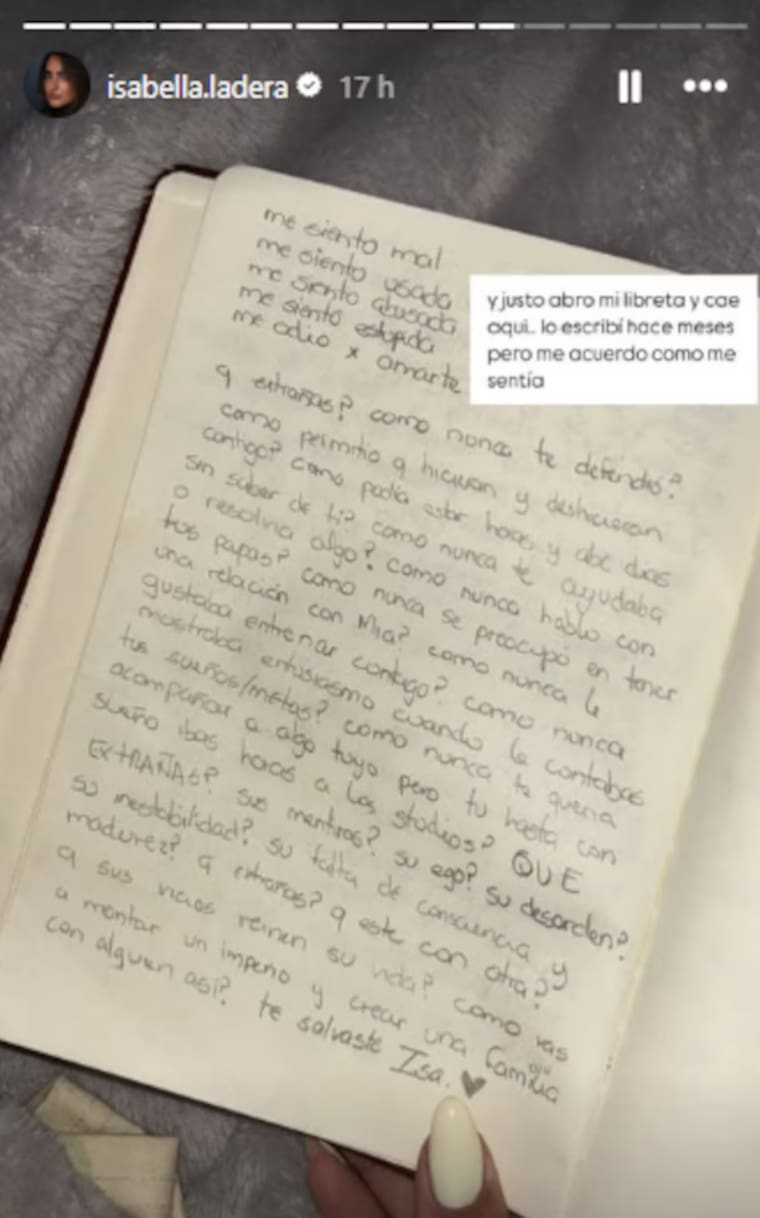 isabella.ladera 17 h
y justo abro mi libreta y cae
aqui.. lo escribí hace meses
pero me acuerdo como me
sentía
me siento mal
me siento usada
me siento abusada
me siento estupida
me odio x amarte
q extrañas? como nunca te defendio?
como permitio q hicieran y deshicieran
contigo? como podía estar horas y abc dias
sin saber de ti? como nunca te ayudaba
o resolvia algo? como nunca hablo con
tus papas? como nunca se preocupó en tener
una relación con Mia? como nunca le
gustaba entrenar contigo? como nunca
mostraba entusiasmo cuando le contabas
tus sueños/metas? como nunca te queria
acompañar a algo tuyo pero tu hasta con
sueño ibas hacas a los studios? QUE
EXTRAÑAS? sus mentiras? su ego? su desorden?
su inestabilidad? su falta de consciencia y
madurez? q extrañas? q este con otra?
q sus vicios reinen su vida? como vas
a montar un imperio y crear una familia
con alguien asi? te salvaste Isa. ♥